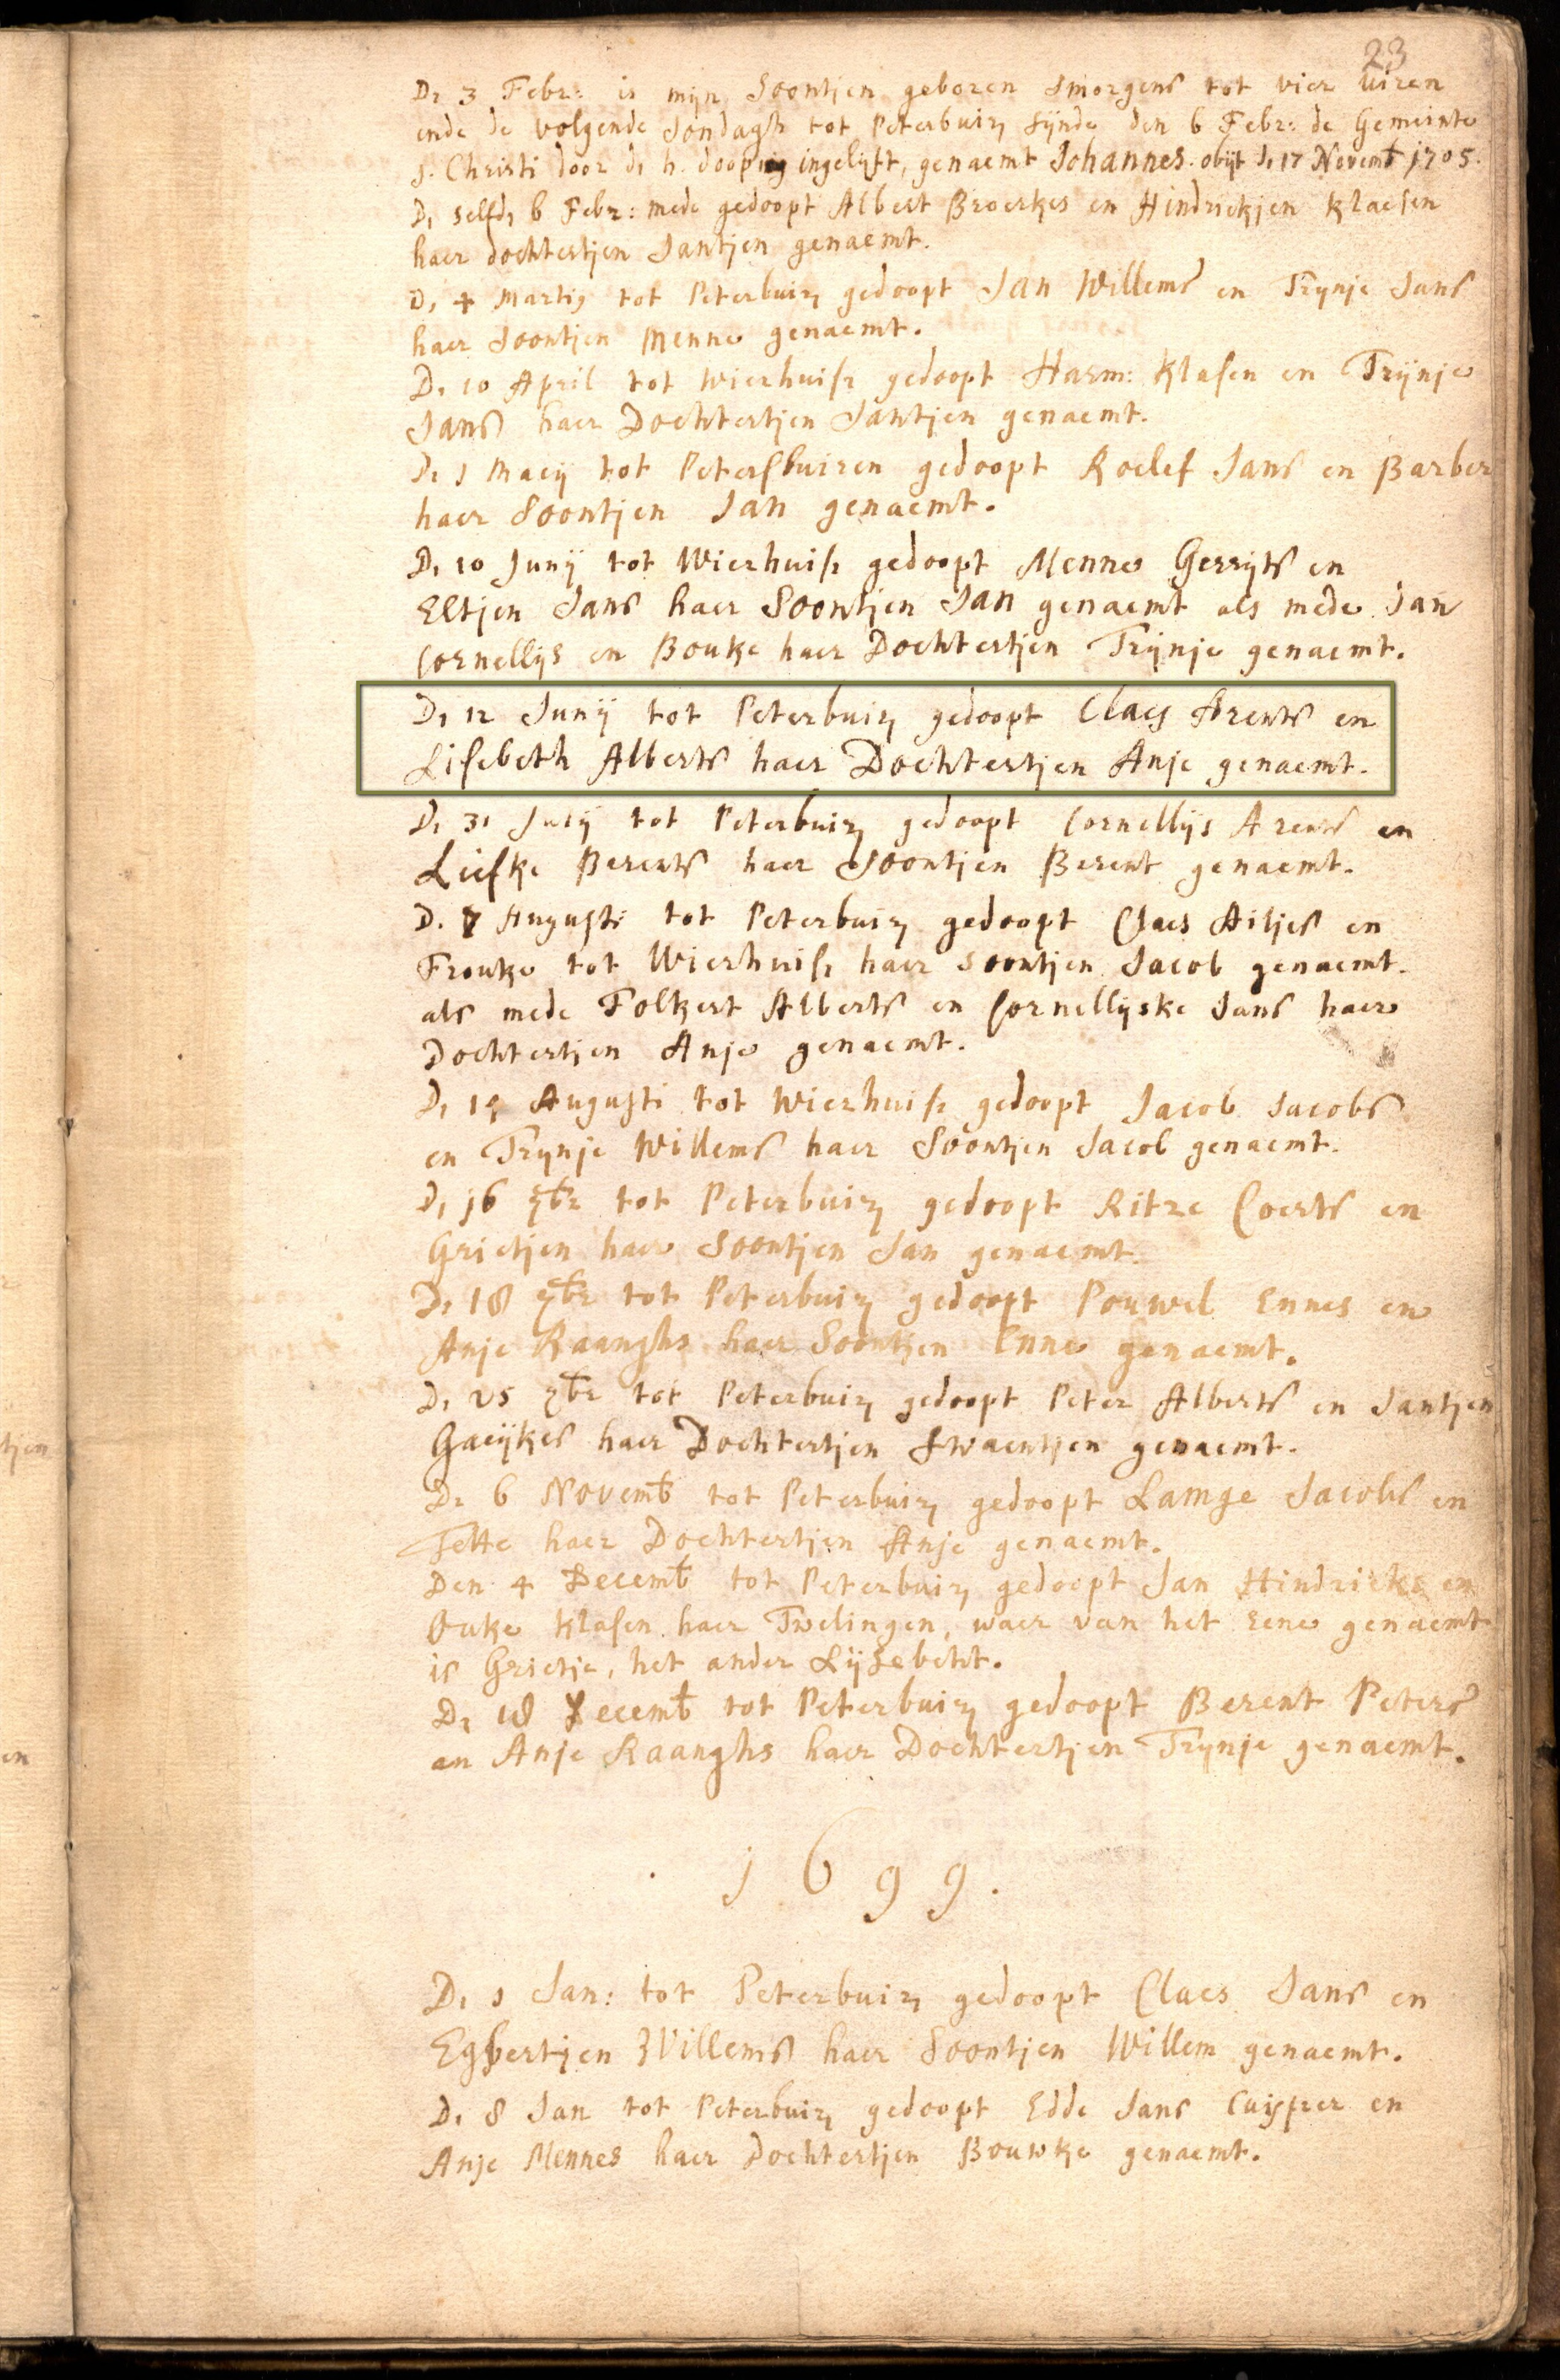 23
D, 3 Febr: is mijn Soontjen geboren smorgens tot vier uiren
ende de volgende Sondagh tot Peterbuir, sijnde den 6 Febr: de Gemeinte
J. Christi door d, h. doop ingelijft, genaemt Johannes. obijt d, 17 Novemb 1705.
D, selfd, 6 Febr: mede gedoopt Albert Broerkes en Hindrickjen Klaesen
haer dochtertjen Jantjen genaemt.
D, 4 Martij tot Peterbuir, gedoopt Jan Willems en Trynje Jans
haer Soontjen Menno genaemt.
D, 10 April tot Wierhuise gedoopt Harm: Klasen en Trijnje
Jans haer Dochtertjen Jantjen genaemt.
D, 1 Maeij tot Petersbuiren gedoopt Roelef Jans en Barber
haer Soontjen Jan genaemt.
D, 10 Junij tot Wierhuis, gedoopt Menno Gerryts en
Eltjen Jans haer Soontjen Jan genaemt als mede Jan
Cornellijs en Bouke haer Dochtertjen Trijnje genaemt.
D, 12 Junij tot Peterbuir, gedoopt Claes Arents en
Lisebeth Alberts haer Dochtertjen Anje genaemt.
D, 31 Julij tot Peterbuir, gedoopt Cornellijs Arents en
Liefke Berents haer Soontjen Berent genaemt.
D. 7 Augusti tot Peterbuir, gedoopt Claes Ailjes en
Frouke tot Wierhuis, haer Soontjen Jacob genaemt.
als mede Folkert Alberts en Cornellijske Jans haer
Dochtertjen Anje genaemt.
D, Augusti tot Wierhuis, gedoopt Jacob Jacobs
en Trynje Willems haer Soontjen Jacob genaemt.
D, 16 tot Peterbuir, gedoopt Ritze Coerts en
Grietjen haer Soontjen Jan genaemt.
D, 18 tot Peterbuir, gedoopt Pouwel Ennes en
Anje Raanghs haer Soontjen Enno genaemt.
D, 25 tot Peterbuir, gedoopt Peter Alberts en Jantjen
Gaeijkes haer Dochtertjen Swaentjen genaemt.
D, 6 Novemb tot Peterbuir, gedoopt Lamge Jacobs en
Tette haer Dochtertjen Anje genaemt.
Den 4 Decemb tot Peterbuir, gedoopt Jan Hindricks en
Auke Klasen haer Twelingen, waer van het eene genaemt
is Grietje, het ander Lijsebeth.
D, 18 Decemb tot Peterbuir, gedoopt Berent Peters
en Anje Raanghs haer Dochtertjen Trynje genaemt.
1699.
D, 1 Jan: tot Peterbuir, gedoopt Claes Jans en
Egbertjen Willems haer Soontjen Willem genaemt.
D, 8 Jan tot Peterbuir, gedoopt Edde Jans Cuijper en
Anje Mennes haer Dochtertjen Bouwke genaemt.